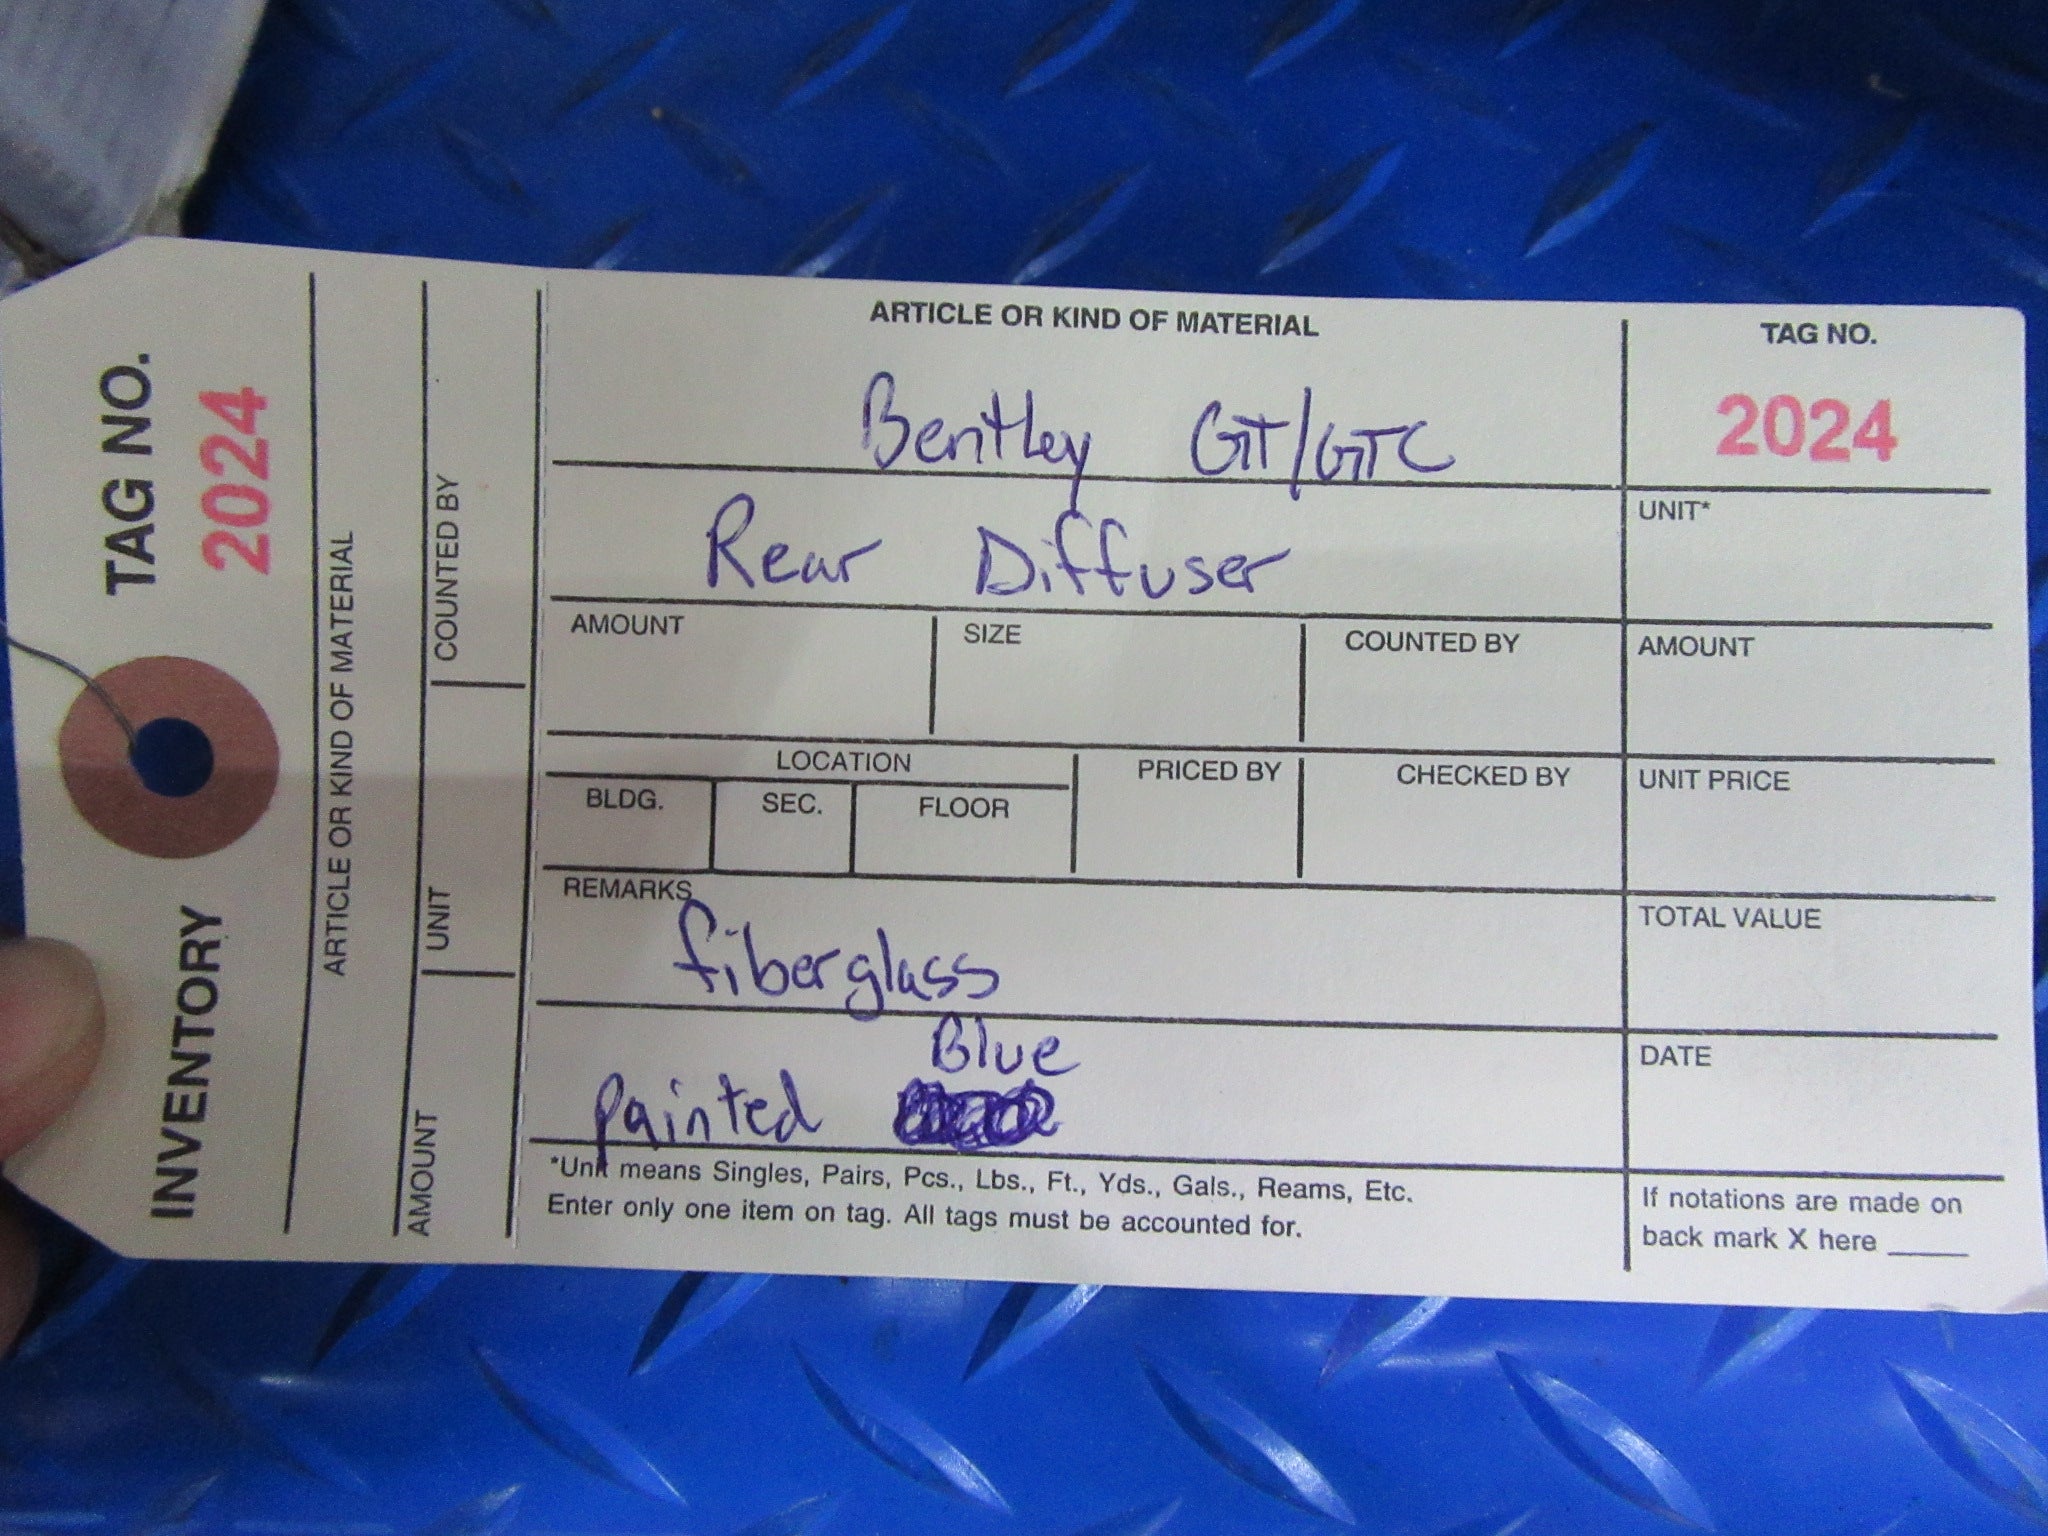 INVENTORY TAG NO.
2024
ARTICLE OR KIND OF MATERIAL
AMOUNT UNIT COUNTED BY
ARTICLE OR KIND OF MATERIAL
Bentley GT/GTC
Rear Diffuser
TAG NO.
2024
UNIT*
AMOUNT SIZE COUNTED BY AMOUNT
LOCATION PRICED BY CHECKED BY UNIT PRICE
BLDG. SEC. FLOOR
REMARKS
fiberglass
TOTAL VALUE
Blue
painted
DATE
*Unit means Singles, Pairs, Pcs., Lbs., Ft., Yds., Gals., Reams, Etc.
Enter only one item on tag. All tags must be accounted for.
If notations are made on
back mark X here